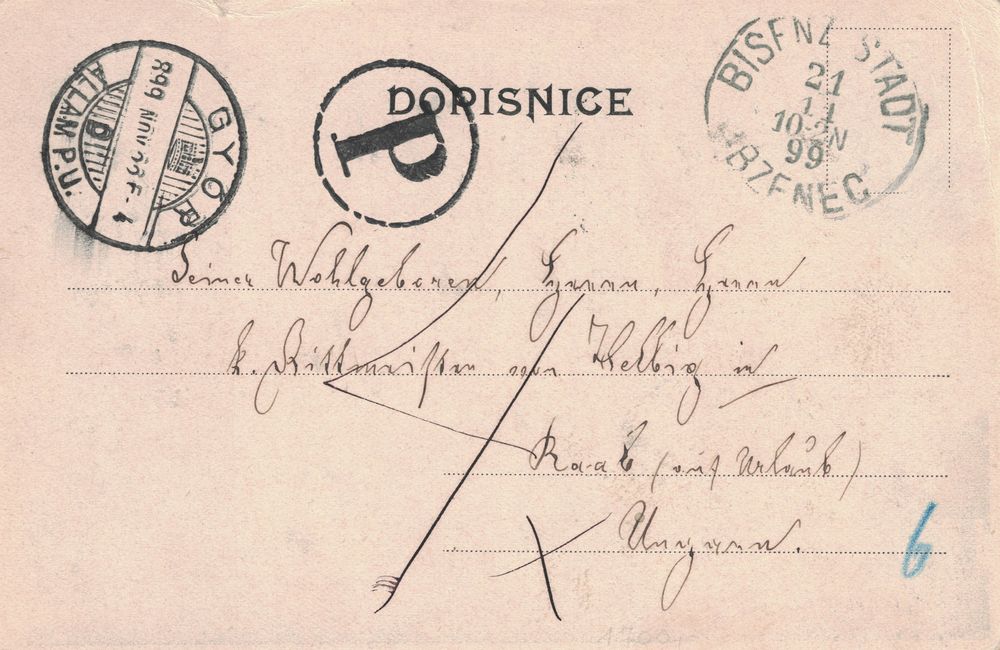 GYŐR
ÁLLAM P.U.
899 NOV 23 F. 4
P
DOPISNICE
BISENZ STADT
21
11
10-
99
BZENEC
Seiner Wohlgeboren, Herrn, Herrn
k. Rittmeister von Helbig in
Raab (auf Urlaub)
Ungarn.
6